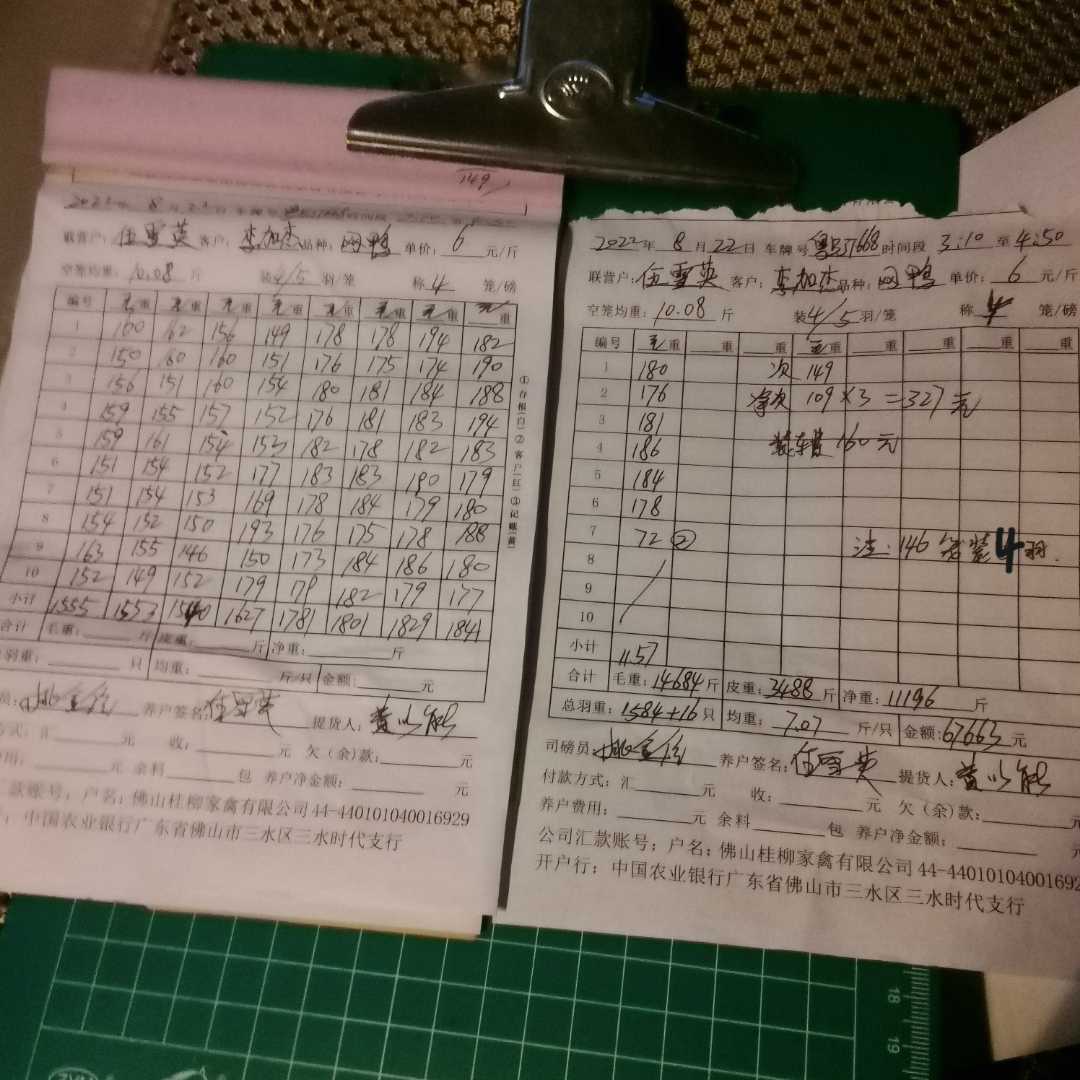 149
2022年 8 月 22 日 车牌号 时间段
联营户：伍雪英 客户：李加杰 品种：网鸭 单价：6 元/斤
空笼均重：10.08 斤 装4/5羽/笼 称4 笼/磅
编号 毛重 毛重 毛重 毛重 毛重 毛重 毛重 毛重
1 160 162 156 149 178 178 194 182
2 150 160 160 151 176 175 174 190
3 156 151 160 154 180 181 184 188
4 159 155 157 152 176 181 183 194
5 159 161 154 153 182 178 182 183
6 151 154 152 177 183 183 180 179
7 151 154 153 169 178 184 179 180
8 154 152 150 193 176 175 178 188
9 163 155 146 150 173 184 186 180
10 152 149 152 179 179 182 179 177
小计 1555 1553 1540 1627 1781 1801 1829 1841
合计 毛重： 斤 皮重： 斤 净重： 斤
羽重： 只 均重： 斤/只 金额： 元
员： 养户签名：伍雪英 提货人：
方式：汇 元 收： 元 欠（余）款： 元
用： 元 余料 包 养户净金额： 元
款账号：户名：佛山桂柳家禽有限公司44-440101040016929
：中国农业银行广东省佛山市三水区三水时代支行
①存根(白)②客户(红)③记账(黄)
2022年 8 月 22 日 车牌号 时间段 3:10 至 4:50
联营户：伍雪英 客户：李加杰 品种：网鸭 单价：6 元/斤
空笼均重：10.08 斤 装4/5羽/笼 称4 笼/磅
编号 毛重 重 重 毛重 重 重 重 重
1 180 次 149
2 176 净次 109×3=327元
3 181
4 186 装车费160元
5 184
6 178
7 72② 注：146笼装4羽.
8
9
10
小计 1157
合计 毛重：14684斤 皮重：3488斤 净重：11196 斤
总羽重：1584+16只 均重：7.07 斤/只 金额：67663元
司磅员： 养户签名：伍雪英 提货人：
付款方式：汇 元 收： 元 欠（余）款： 元
养户费用： 元 余料 包 养户净金额： 元
公司汇款账号；户名：佛山桂柳家禽有限公司44-44010104001692
开户行：中国农业银行广东省佛山市三水区三水时代支行
18
19